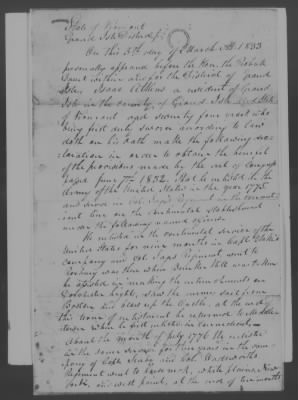 State of Vermont
Grand Isle District ss
On this 5th day of March AD. 1833
personally appeared before the Hon. the Probate
Court within and for the District of Grand
Isle, Isaac a resident of Grand
Isle in the County of Grand Isle and State
of Vermont aged seventy four years who
being first duly sworn according to law
doth on his oath make the following dec
laration in order to obtain the benefit
of the provisions made by the act of Congress
passed June 7th 1832. That he enlisted in the
Army of the United States in the year 1775
and served in Col. Regiment in the
line on the continental establishment
under the following named officers.
He enlisted in the continental service of the
United States for nine months in Capt.
company and Col. Regiment went to
Roxbury was there when Bunker Hill was
he assisted in making the entrenchments on
Dorchester heights, when the enemy
Boston and blew up the Castle. at the end of
the term of enlistment he returned to Middle
town where he first enlisted in Connecticut.
About the month of July 1776 He enlisted
in the same service for in the com
pany of Capt. and Col. Wadsworths
Regiment went to White plains, New
York, at the end of months